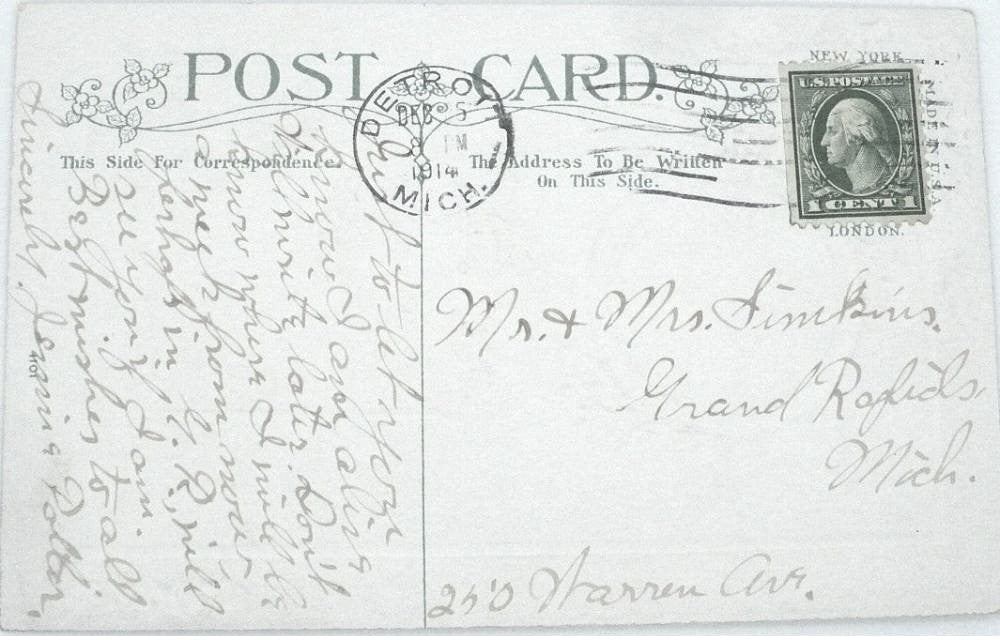 POST CARD.
This Side For Correspondence.
The Address To Be Written
On This Side.
DETROIT
DEC 5
8 PM
1914
MICH.
NEW YORK
MADE IN U.S.A.
LONDON.
U.S. POSTAGE
1 CENT 1
Just to let you
know I am alive
Will write later. Don't
know where I will be
a week from now
perhaps in G. R., will
see you if I am.
Best wishes to all
Sincerely, Jennie Potter.
4101
Mr. & Mrs. Simkins.
Grand Rapids
Mich.
250 Warren Ave.